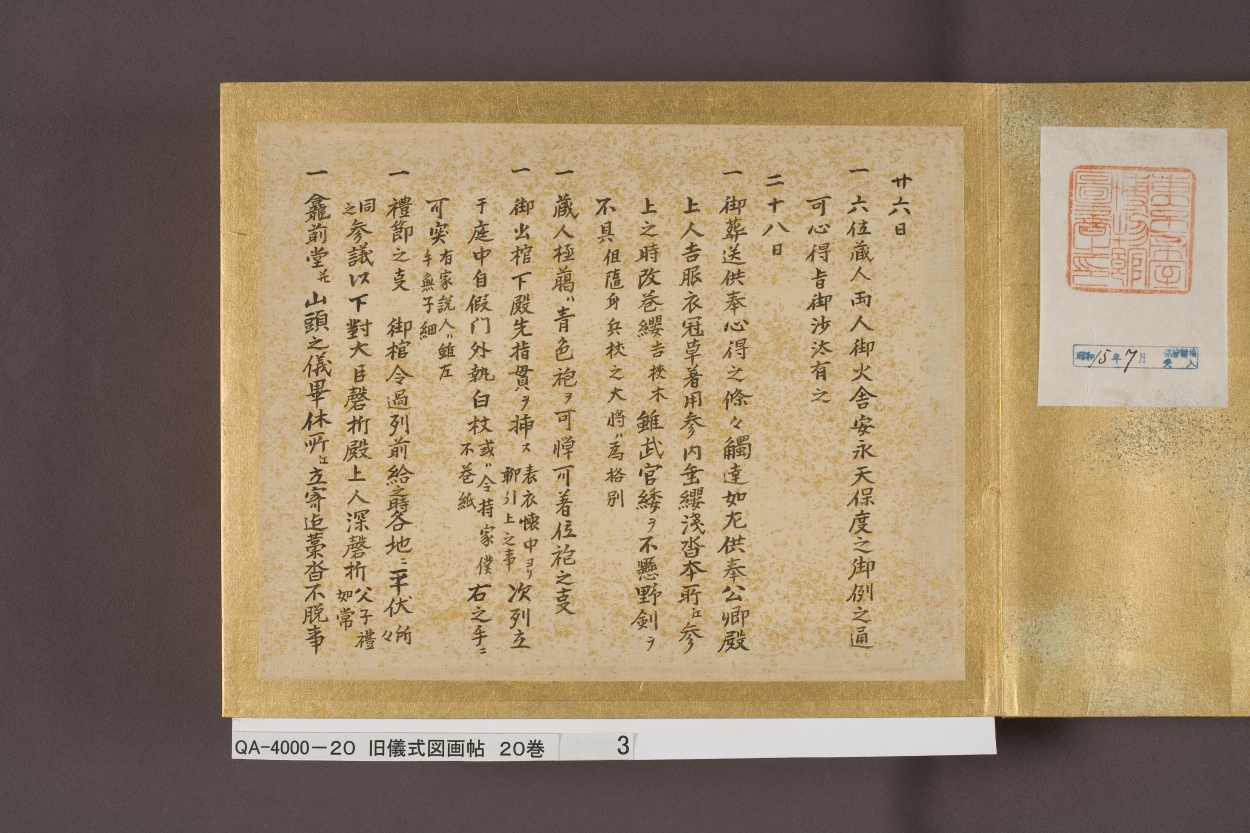 廿六日
一 六位蔵人両人御火舎安永天保度之御例之通
可心得旨御沙汰有之
二十八日
一 御葬送供奉心得之條々觸達如左供奉公卿殿
上人吉服衣冠単著用参内垂纓淺沓本所江参
上之時改巻纓吉挍木雖武官緌ヲ不懸野剣ヲ
不具但隨身兵挍之大将ハ為格別
一 蔵人極﨟ハ青色袍ヲ可憚可着位袍之支
一 御出棺下殿先指貫ヲ挿ス表衣懐中ヨリ聊引上之事次列立
于庭中自假门外執白杖或ハ令持家僕不巻紙右之手ニ
可突有家説人ハ雖左手無子細
一 禮節之支 御棺令過列前給之時各地ニ平伏所々
同之参議以下對大臣磬折殿上人深磬折父子禮如常
一 龕前堂并山頭之儀畢休所江立寄迄藁沓不脱事
昭和15年7月
QA-4000-20 旧儀式図画帖 20巻 3